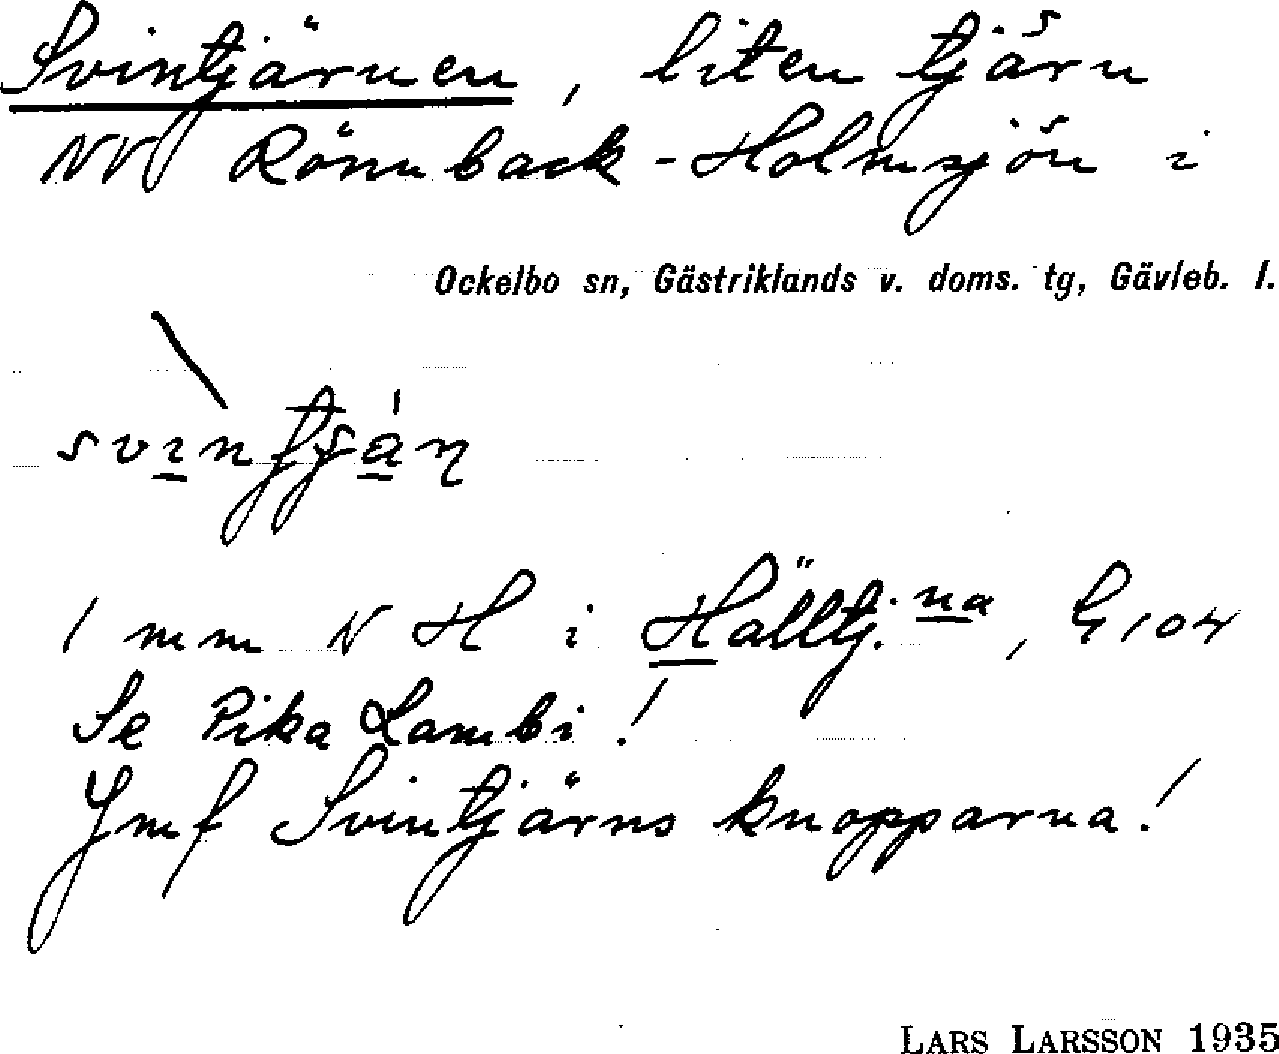 Svintjärnen, liten tjärn
NV Rönnback-Holmsjön i
Ockelbo sn, Gästriklands v. doms. tg, Gävleb. l.
1 mm N H i Hälltj.na, G 104
Se Pika Lambi!
Jmf Svintjärnsknopparna!
LARS LARSSON 1935